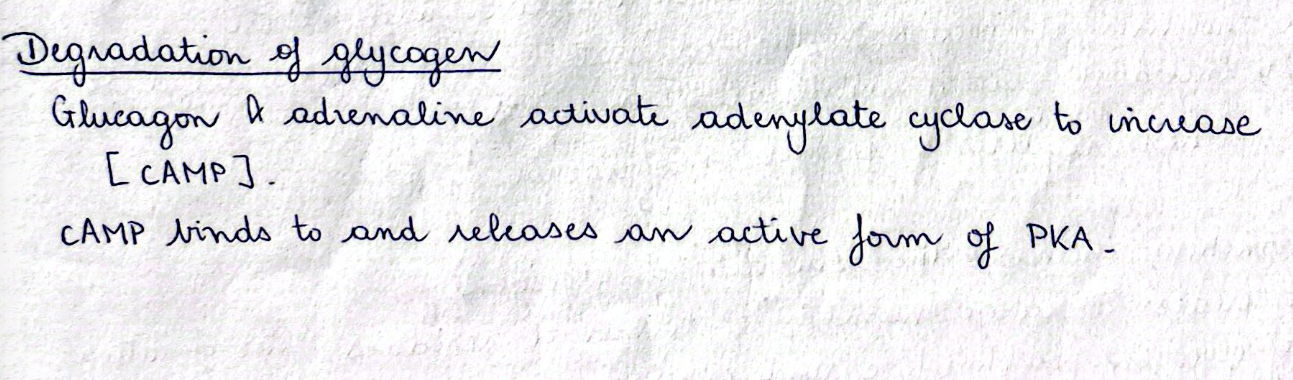 Degradation of glycogen
Glucagon & adrenaline activate adenylate cyclase to increase
[cAMP].
cAMP binds to and releases an active form of PKA.